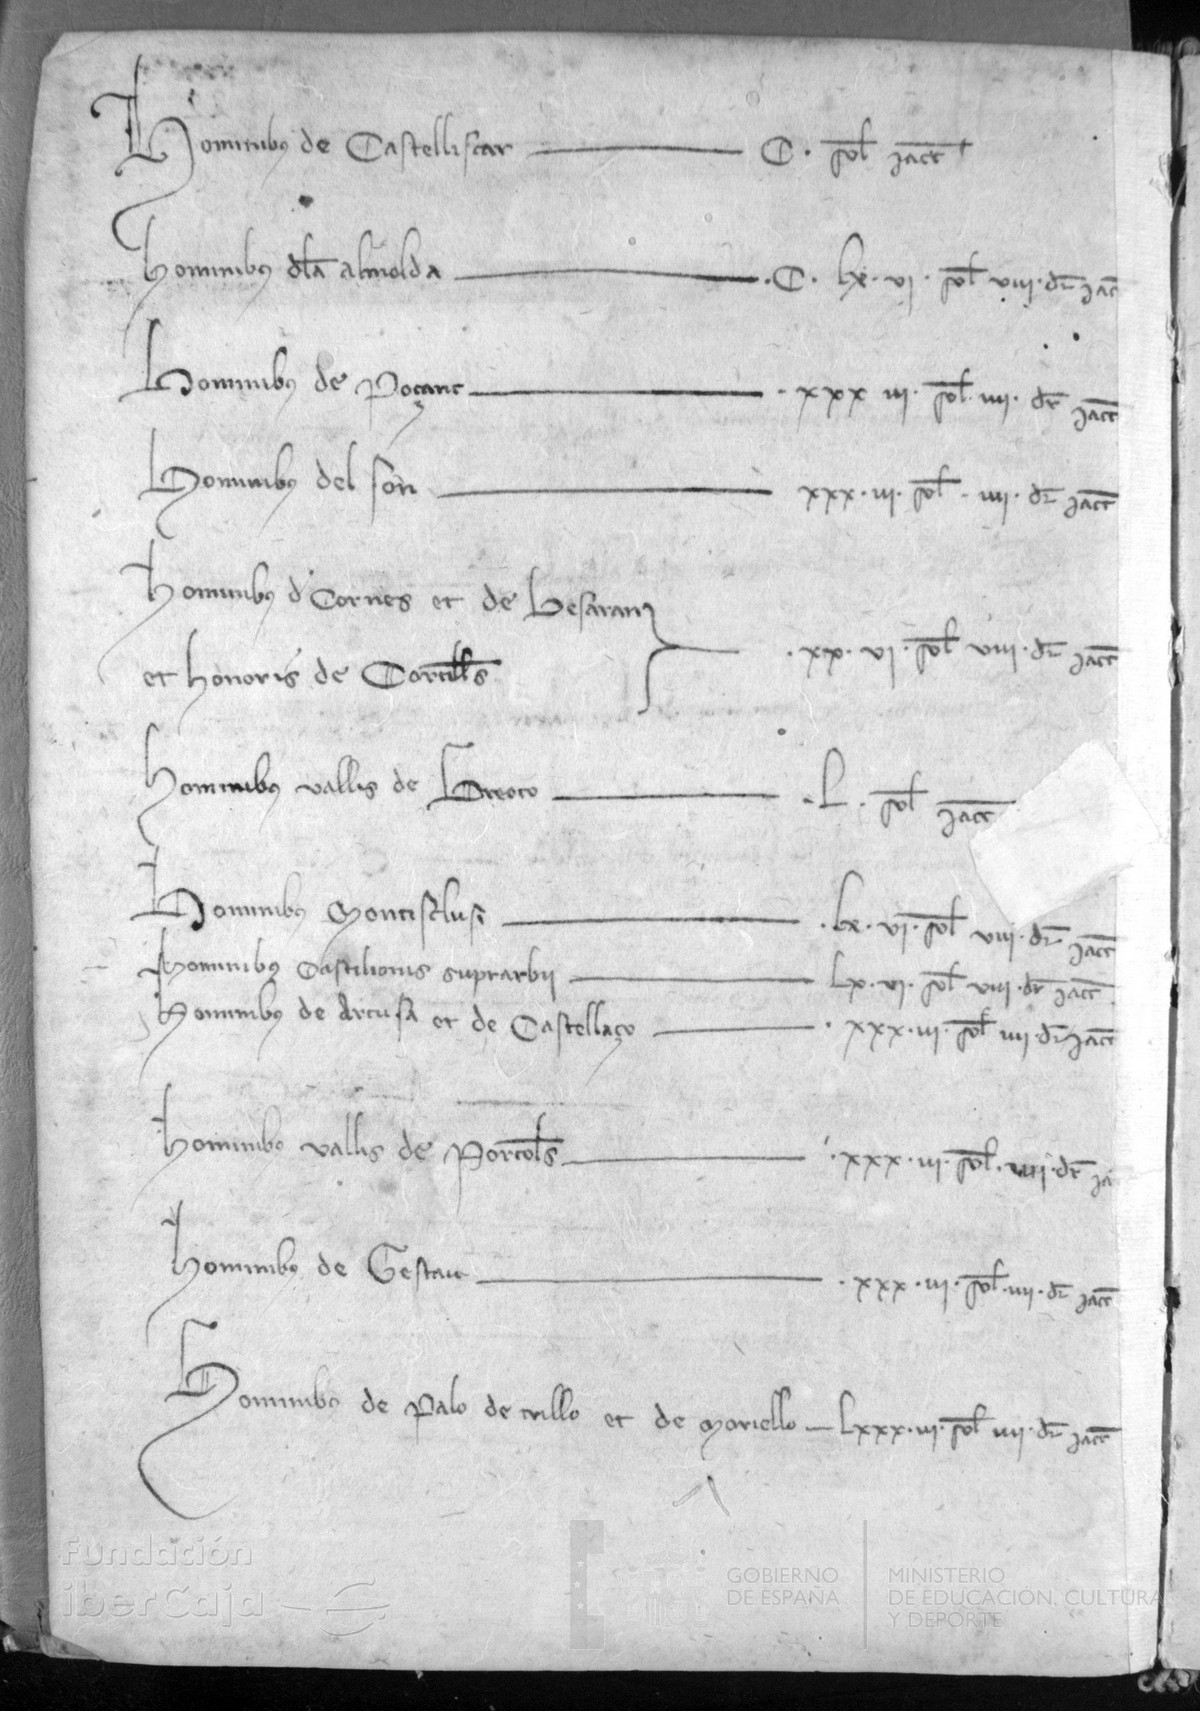 Hominibus de Castelliscar C. sol jacc
hominibus dla almolda .C. lx.vi. sol viii.dr jacc
Hominibus de Poçant .xxx iii. sol. iiii. dr jacc
Hominibus del son xxx.iii. sol. iiii. dr jacc
hominibus d'Cornes et de besaran
et honoris de Corcills .xx.vi. sol viii.dr jacc
hominibus vallis de .L. sol jacc
Hominibus Montisclusi .lx.vi. sol viii.dr jacc
hominibus Castilionis suprarbii lx.vi. sol viii.dr jacc
hominibus de Arcusa et de Castellaço .xxx.iii. sol iiii.dr jacc
hominibus vallis de Porcols .xxx.iii. sol. iiii.dr ja
hominibus de Gestau .xxx.iii. sol.iiii.dr jacc
Hominibus de Palo de trillo et de Moriello lxxx.iii. sol iiii.dr jacc
Fundación
iberCaja
GOBIERNO
DE ESPAÑA
MINISTERIO
DE EDUCACIÓN, CULTURA
Y DEPORTE